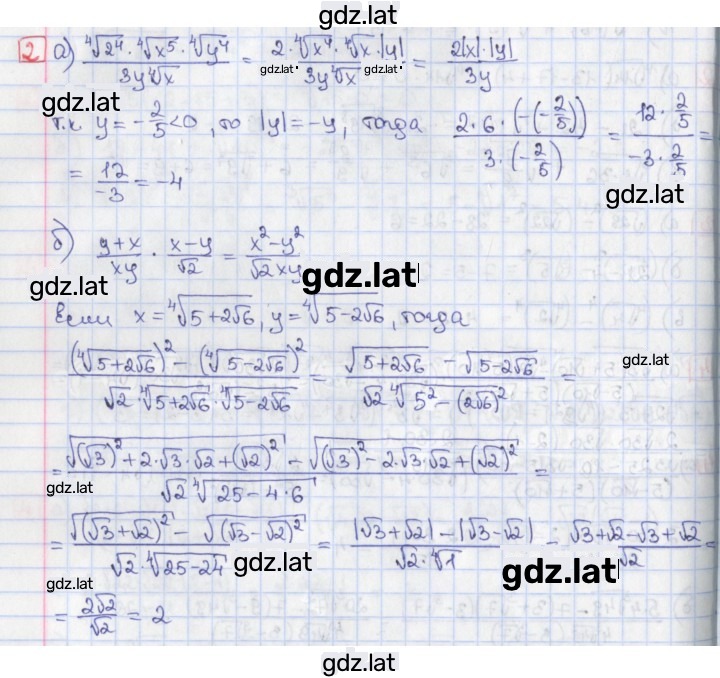 gdz.lat
2 а) ⁴√2⁴ · ⁴√x⁵ · ⁴√y⁴ / 3y⁴√x = 2 · ⁴√x⁴ · ⁴√x · |y| / 3y⁴√x = 2|x|·|y| / 3y
gdz.lat gdz.lat
gdz.lat
т.к y = -2/5 < 0, то |y| = -y, тогда 2·6·(-(-2/5)) / 3·(-2/5) = 12 · 2/5 / -3 · 2/5 =
= 12/-3 = -4
gdz.lat
б) y+x/xy · x-y/√2 = x²-y²/√2xy
gdz.lat gdz.lat
Если x = ⁴√5+2√6, y = ⁴√5-2√6, тогда
(⁴√5+2√6)² - (⁴√5-2√6)² / √2 · ⁴√5+2√6 · ⁴√5-2√6 = √5+2√6 - √5-2√6 / √2 ⁴√5² - (2√6)² =
gdz.lat
= √(√3)² + 2·√3·√2 + (√2)² - √(√3)² - 2·√3·√2 + (√2)² / √2 ⁴√25-4·6 =
gdz.lat
= √(√3+√2)² - √(√3-√2)² / √2 · ⁴√25-24 = |√3+√2| - |√3-√2| / √2 · ⁴√1 = √3+√2-√3+√2 / √2 =
gdz.lat gdz.lat
= 2√2/√2 = 2
gdz.lat